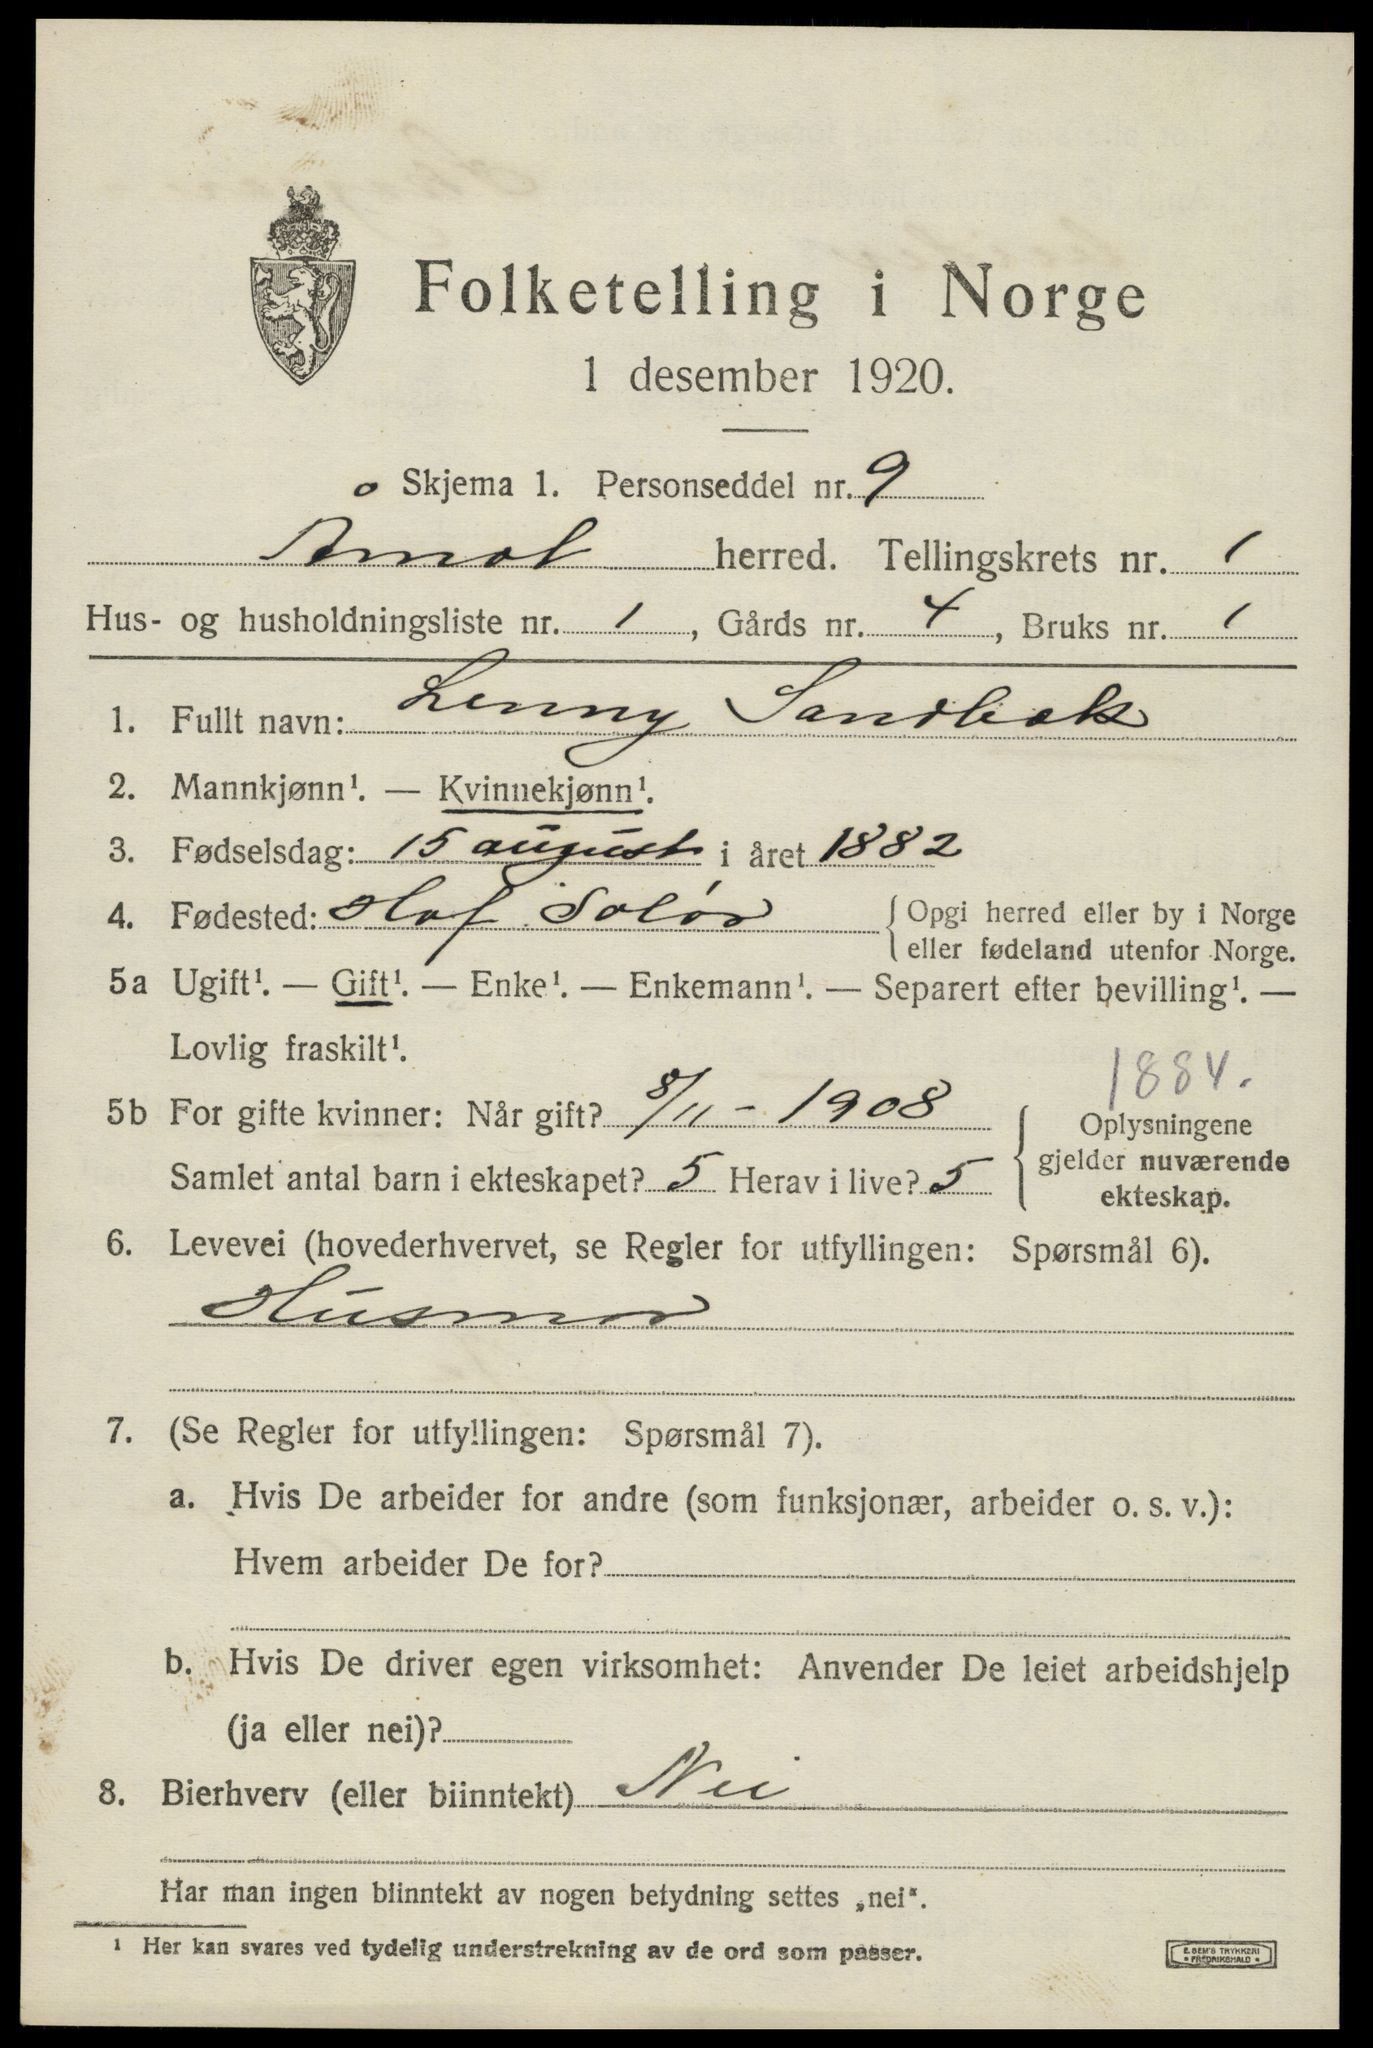 Folketelling i Norge
1 desember 1920.
Skjema 1. Personseddel nr. 9
Åmot herred. Tellingskrets nr. 1
Hus- og husholdningsliste nr. 1, Gårds nr. 4, Bruks nr. 1
1. Fullt navn: Lenny Sandbæk
2. Mannkjønn¹. — Kvinnekjønn¹.
3. Fødselsdag: 15 august i året 1882
4. Fødested: Hof Solør {Opgi herred eller by i Norge
eller fødeland utenfor Norge.
5a Ugift¹. — Gift¹. — Enke¹. — Enkemann¹. — Separert efter bevilling¹. —
Lovlig fraskilt¹.
1884.
5b For gifte kvinner: Når gift? 8/11 - 1908
Samlet antal barn i ekteskapet? 5 Herav i live? 5
{Oplysningene
gjelder nuværende
ekteskap.
6. Levevei (hovederhvervet, se Regler for utfyllingen: Spørsmål 6).
Husmor
7. (Se Regler for utfyllingen: Spørsmål 7).
a. Hvis De arbeider for andre (som funksjonær, arbeider o. s. v.):
Hvem arbeider De for?
b. Hvis De driver egen virksomhet: Anvender De leiet arbeidshjelp
(ja eller nei)?
8. Bierhverv (eller biinntekt) Nei
Har man ingen biinntekt av nogen betydning settes „nei".
¹ Her kan svares ved tydelig understrekning av de ord som passer.
E. SEM'S TRYKKERI
• FREDRIKSHALD •